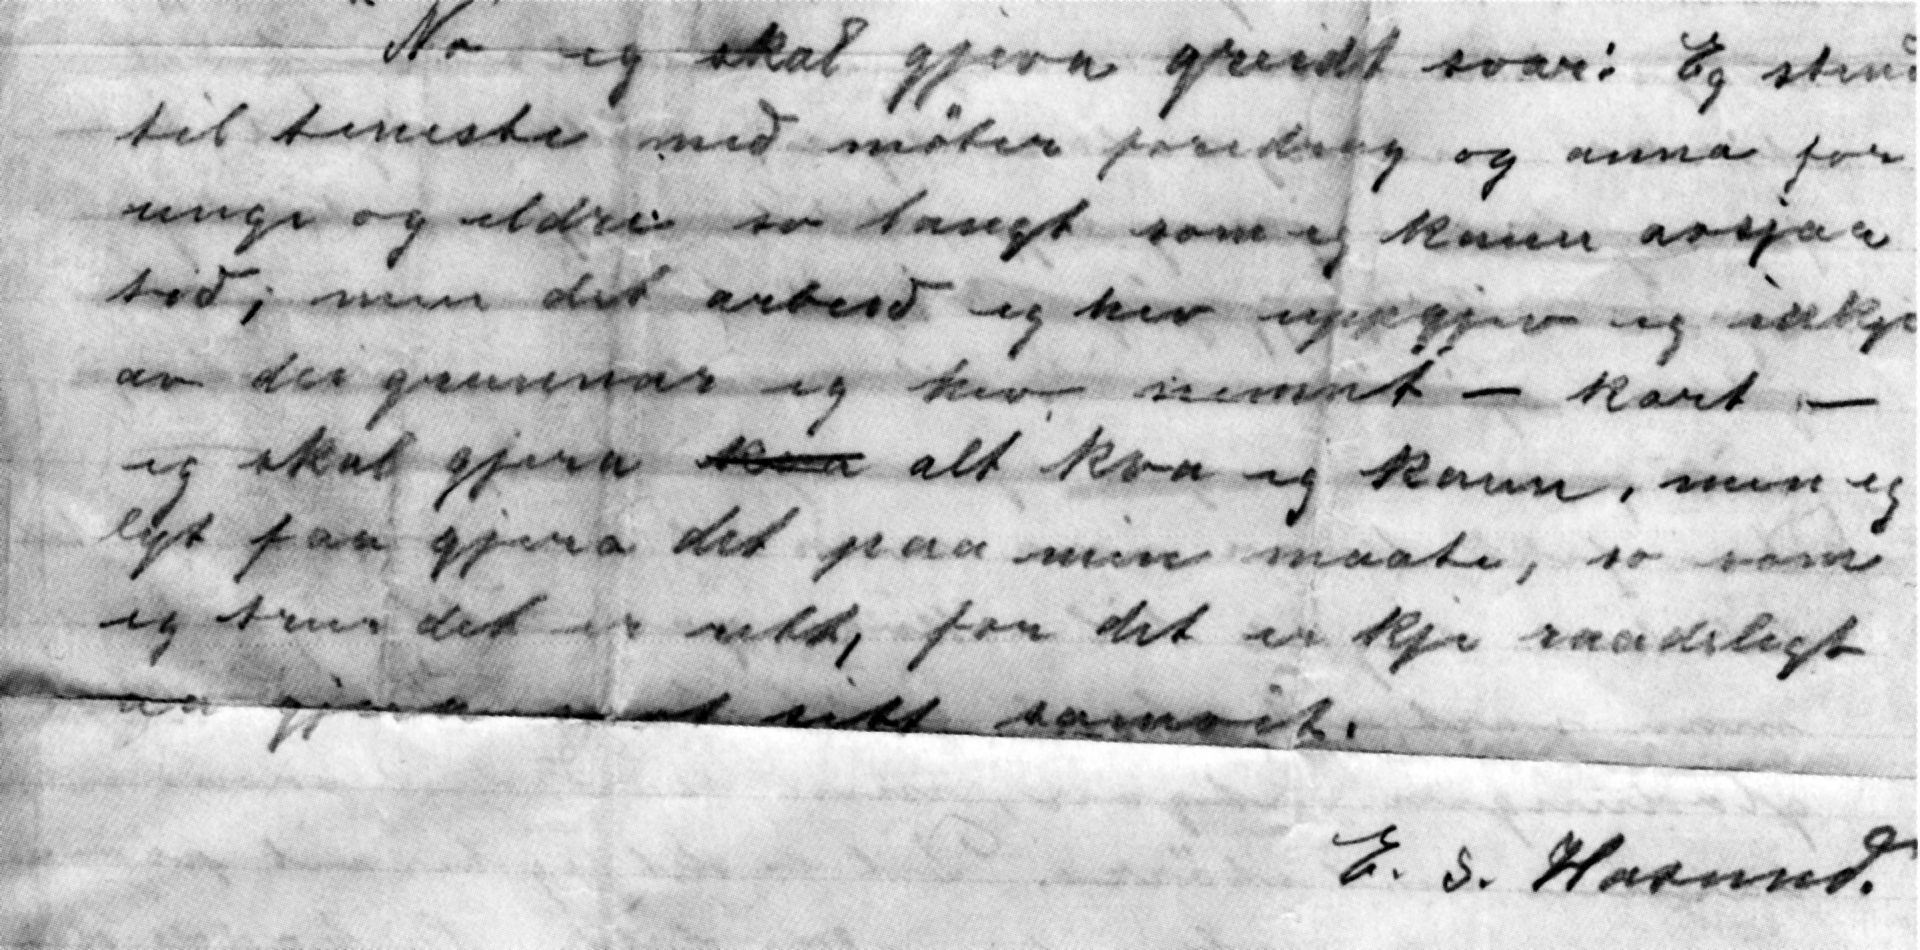 No eg skal gjeva greidt svar: Eg stend
til teneste med möter foredrag og anna for
unge og eldre so langt som eg kann avsjaa
tid; men det arbeid eg hev uppgjev eg inkje
av dei grunnar eg hev nemnt — kort —
eg skal gjera kva alt kva eg kann, men eg
lyt faa gjera det paa min maate, so som
eg trur det er rett, for det er kje raadelegt
aa gjera mot sitt samvit.
E. S. Hasund.